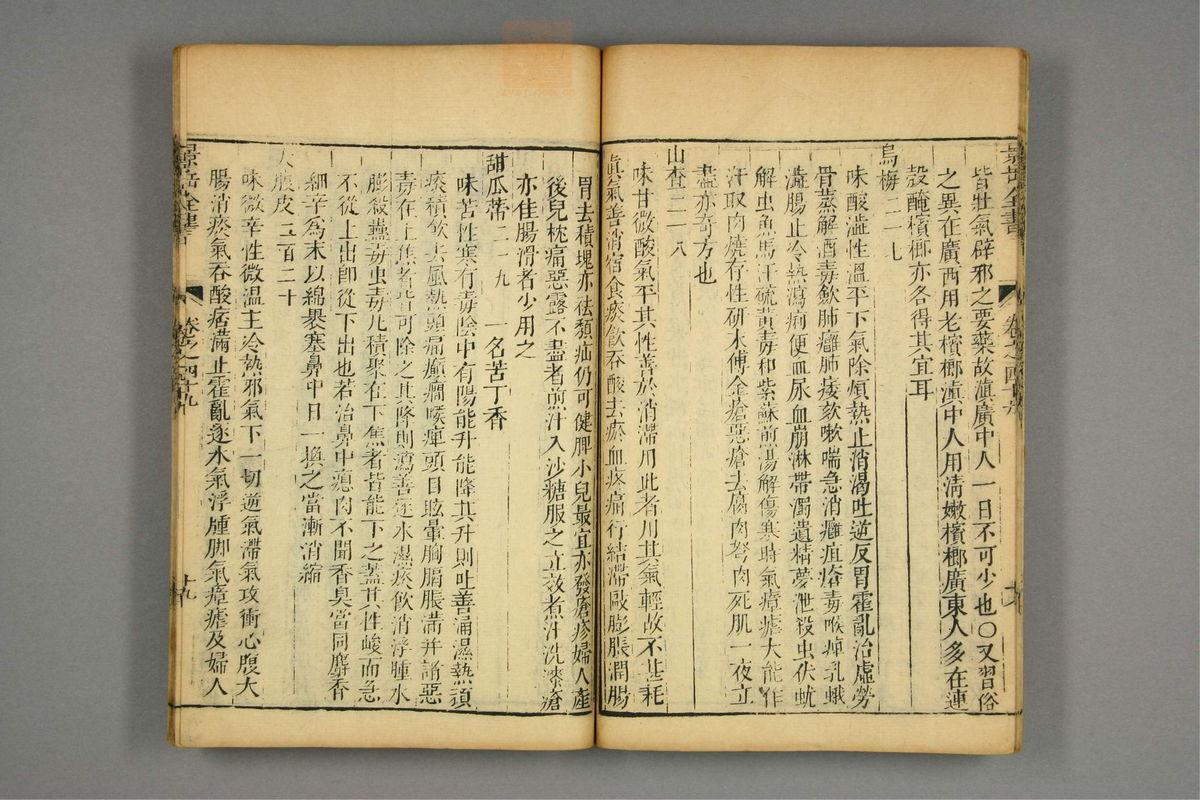 景岳全書
卷之四十九
皆壯氣辟邪之要藥故滇廣中人一日不可少也〇又習俗
之異在廣西用老檳榔滇中人用清嫩檳榔廣東人多在連
殼醃檳榔亦各得其宜耳
烏梅二一七
味酸澁性溫平下氣除煩熱止消渴吐逆反胃霍亂治虛勞
骨蒸解酒毒歛肺癰肺痿欬嗽喘急消癰疽瘡毒喉痺乳蛾
澁腸止冷熱瀉痢便血尿血崩淋帶濁遺精夢泄殺虫伏蚘
解虫魚馬汗硫黃毒和紫蘇煎湯解傷寒時氣瘴瘧大能作
汗取肉燒存性研末傅金瘡惡瘡去腐肉弩肉死肌一夜立
盡亦奇方也
山查二一八
味甘微酸氣平其性善於消滯用此者用其氣輕故不甚耗
眞氣善消宿食痰飲吞酸去瘀血疼痛行結滯敺膨脹潤腸
胃去積塊亦祛㿗疝仍可健脾小兒最宜亦發瘡疹婦人產
後兒枕痛惡露不盡者煎汁入沙糖服之立效煮汁洗漆瘡
亦佳腸滑者少用之
甜瓜蒂二一九 一名苦丁香
味苦性寒有毒陰中有陽能升能降其升則吐善涌濕熱頑
痰積飲去風熱頭痛癲癇喉痺頭目眩暈胸膈脹滿并諸惡
毒在上焦者皆可除之其降則瀉善逐水濕痰飲消浮腫水
膨殺蠱毒虫毒凡積聚在下焦者皆能下之蓋其性峻而急
不從上出卽從下出也若治鼻中瘜肉不聞香臭當同麝香
細辛為末以綿褁塞鼻中日一換之當漸消縮
大腹皮二百二十
味微辛性微溫主冷熱邪氣下一切逆氣滯氣攻衝心腹大
腸消痰氣吞酸痞滿止霍亂逐水氣浮腫脚氣瘴瘧及婦人
景岳全書
卷之四十九
十九